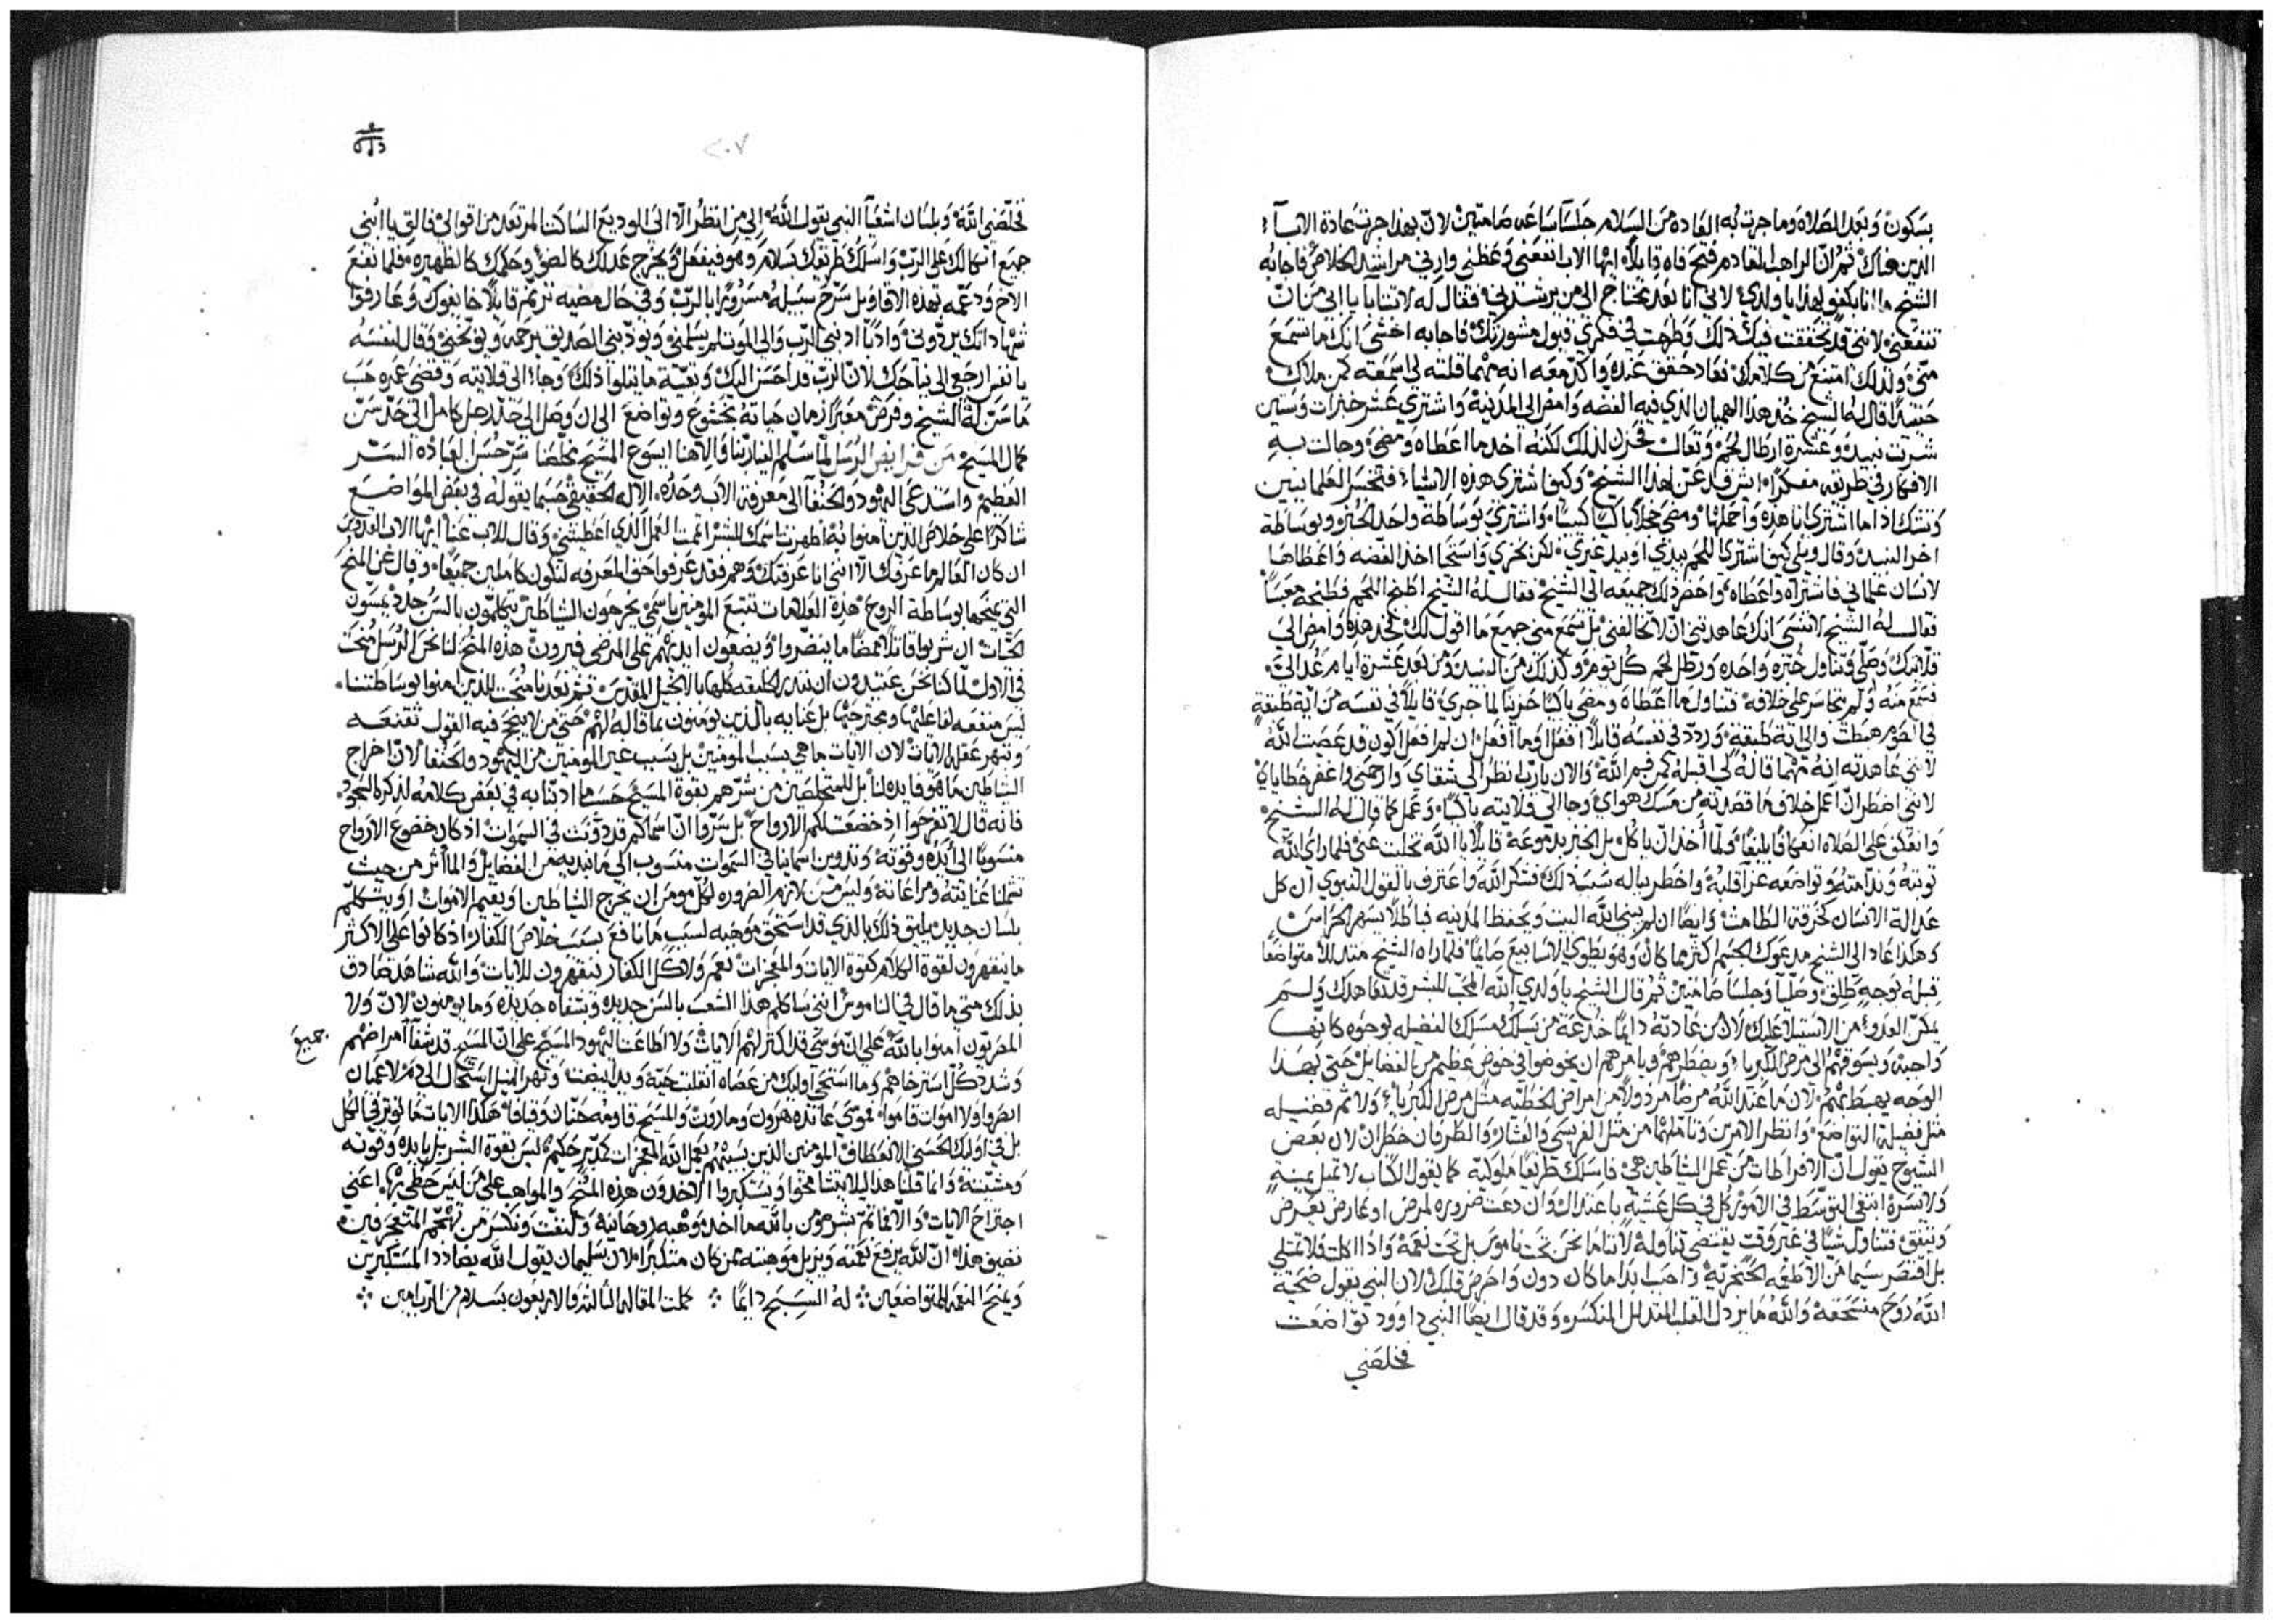 بسكون وبعد الصلاه وما جرت به العاده من السلام جلسا ساعه صامتين لان بهذا جرت عادة الابآء
الدين هناك ثم ان الراهب القادم فتح فاه قايلاً ايها الاب انفعنى وعظنى وارنى مراشد الخلاص فاجابه
الشيخ ما انا بكفو لهذا يا ولدي لاني انا بعد محتاج الى من يرشدني فقال له لا تتابا يا ابى من ان
تنفعني لانني قد تحققت فيك ذلك وطهت في فكري قبول مشورتك فاجابه اخشى انك ما تسمع
منى ولذلك امتنع من كلامك فعاد حقق عنده واكد معه انه مهما قلته لى اسمعه كمن ملاك
حينيذٍ قال له الشيخ خذ هذا الهميان الذي فيه الفضه وامض الى المدينه واشتري عشر خبزات وستين
شربت نبيذ وعشرة ارطال لحم وتعال فحزن لذلك لكنه اخد ما اعطاه ومضى وجالت به
الافكار في طريقه مفكراً عن هذا الشيخ وكيف اشتري هذه الاشياء فتخسر العلمانيين
وتشك اذا ما اشتري انا هذه واحملها ومضى خجلاً باكياً كييباً واشتري بوساطة واحد الخبز وبوساطة
اخر النبيذ وقال ويلي كيف اشتري اللحم بيدي او بيد غيري لكن بحزي واستحيا اخد الفضه واعطاها
لانسان علماني فاشتراه واعطاه واحضر ذلك جميعه الى الشيخ فقال له الشيخ اطبخ اللحم فطبخه معبساً
فقال له الشيخ لا تنسى انك عاهدتني ان لا تخالفني بل تسمع منى جميع ما اقول لك فخد هذه وامض الى
قلايتك وصلّي وتناول خبزه واحده ورطل لحم كل يوم وكذلك من النبيذ ومن بعد عشرة ايام عُد الىَّ
فسمع منه ولم يتجاسر على خلافه فتناول ما اعطاه ومضى باكياً حزيناً لما جرى قايلاً في نفسه من اية طبقة
في الصوم هبطت والى اية طبقة وردد في نفسه قايلاً افعل وما افعل ان لم افعل اكون قد عصيت الله
لانى عاهدته انه مهما قاله لى اقبله كمن فم الله والان يارب انظر الى شقاي وارحمني واغفر خطاياي
لاننى اضطر ان اعمل خلاف ما قصدته من مسك هواي وجا الى قلايته باكياً وعمل كما قال له الشيخ
وانعكف على الصلاه ولما أخد ان ياكل بل الخبز بدموعه قايلاً يا الله تخلت عنى فلما راى الله
توبته وندامته وتواضعه عزا قلبه واخطر بباله سبب ذلك فشكر الله واعترف بالقول النبوي ان كل
عدالة الانسان كخرقة الطامث وايضاً ان لم يبنِ الله البيت ويحفظ المدينه فباطلاً يسهر الحراس
وهكذا عاد الى الشيخ مدعوك الجسم اكثر مما كان وهو يطوي الاسابيع صايماً فلما راه الشيخ متذللاً متواضعاً
قبله بوجهٍ طلق وصلّيا وجلسا صامتين ثم قال الشيخ يا ولدي الله المحب للبشر قد تعاهدك ولم
يمكّن العدو من الاستيلا عليك لان من عادته دايماً خدعة من يسلك مسلك الفضيله بوجوه كانها
واجبه ويسوقهم الى مرض الكبريا ويضطرهم ويامرهم ان يخوضوا في خوض عظيم من الفضايل حتى بهذا
الوجه يهبطهم لان ما عند الله مرضاً مردولاً من امراض الخطيه مثل مرض الكبرياء ولا ثم فضيله
مثل فضيلة التواضع وانظر الامرين وتاملهما من مثل الفريسي والعشار والطرفان خطران لان بعض
الشيوخ يقول ان الافراطات من عمل الشياطين هي فاسلك طريقاً ملوكيه كما يقول الكتاب لا تميل يمنةٍ
ولا يسرة ابتغى التوسط في الامور كل في كل عشيّة باعتدال وان دعت ضروره لمرض او عارض يعرض
ويتفق تتناول شيّاً في غير وقت يقتضى تناوله لاننا ما نحن تحت ناموس بل تحت نعمه واذا اكلت فلا تمتلى
بل اقتصر سيما من الاطعمه الحنجريه واحب ابداً ما كان دون واحرص قلبك لان النبي يقول ضحية
الله روح منسحقه والله ما يردل القلب المتدلل المنكسر وقد قال ايضاً النبي داوود تواضعت
فخلصني
٢٠٧
فخلّصني الله وبلسان اشعيآ النبي يقول الله الى من انظر الّا الى الوديع الساكن المرتعد من اقوالى فالق يا ابنى
جميع اتكالك على الرب واسلك طريقك بسلام وهو فيفعل ويخرج عدلك كالضوء وحكمك كالظهيره فلما نفع
الاخ ودعمه بهذه الاقاويل سرح سبيله مسروراً بالرب وفى حال مضيه ترنم قايلاً خايفوك وعارفوا
شهاداتك يردوني وادباً ادبني الرب والى الموت لم يسلمني ويودبني الصديق برحمه ويوبخني وقال لنفسه
يا نفس ارجعى الى نياحك لان الرب قد احسن اليك وبقية ما يتلوا ذلك وجا الى قلايته وقضى عمره حسب
ما سنّ له الشيخ وفرض معبراً زمان حياته بخشوع وتواضع الى ان وصل الى حد رجل كامل الى حد سن
كمال المسيح من فرايض الرسل لما سلّم الينا ربنا والاهنا يسوع المسيح مخلصنا سر حسن العبادة السر
العظيم واستدعى اليهود والحنفآ الى معرفة الاب وحده الاله الحقيقي حسبما يقوله في بعض المواضيع
شاكراً على خلاص الذين امنوا به اظهرت اسمك للبشر اتممت العمل الذي اعطيتني وقال للاب عنا ايها الاب العدوس
ان كان العالم ما عرفك الّا اننى انا عرفتك وهم فقد عرفوا حق المعرفه لنكون كاملين جميعاً وقال عن المنح
التى يمنحها بوساطة الروح هذه العلامات تتبع المومنين باسمي يخرجون الشياطين يتكلمون بالسن جدد يمسون
الحيات ان شربوا قاتلاً ممضاً ما ينضروا ويضعون ايديهم على المرضى فيبرون هذه المنح لنا نحن الرسل منحت
في الاول لما كنا نحن عتيدون ان ننذر الخليقه كلها بالانجيل المقدس ثم بعدنا منحت للذين امنوا بوساطتنا
ليس منفعه لفاعليها ومجترحيها بل عنايه بالذين يومنون بما قاله لهم حتى من لا ينجح فيه القول تقنعه
وتبهر عقله الايات لان الايات ما هي بسبب المومنين بل بسبب غير المومنين من اليهود والحنفا لان اخراج
الشياطين ما هو فايده لنا بل للمتخلصين من شرهم بقوة المسيح حسبما ادبنا به في بعض كلامه لذكره المجد
فانه قال لا تفرحوا اذ خضعت لكم الارواح بل سرّوا ان اسماكم قد دوّنت في السموات اذ كان خضوع الارواح
منسوباً الى أيده وقوته وتدوين اسماينا في السموات منسوب الى ما نبديه من الفضايل والماثر من حيث
تشملنا عنايته ومراعاته وليس من لازم الضروره لكل مومن ان يخرج الشياطين او يقيم الاموات او يتكلم
بلسان جديد بل يليق ذلك بالذي قد استحق موهبه لسبب ما نافع بسبب خلاص الكفار اذ كانوا على الاكثر
ما ينقهرون لقوة الكلام كقوة الايات والمعجزات نعم ولا كل الكفار ينقهرون للايات والله شاهد صادق
بذلك متى ما قال في الناموس اننى ساكلم هذا الشعب بالسن جديده وبشفاه جديده وما يومنون لان ولا
المصريون امنوا بالله على ان موسى قد اكثر لهم الايات ولا اطاعت اليهود المسيح على ان المسيح قد شفا امراضهم جميع
وشدد كل استرخاهم وما استحى اوليك من عصاه انقلبت حيّه ويد ابيضت ونهر النيل استحال الى دم لا عميان
ابصروا ولا اموات قاموا فموسى عانده هرون وماروت والمسيح قاومه حنان وقيافا هكذا الايات ما توثر في الكل
بل في اوليك الحسني الانعطاف المومنين الذين بسببهم يعمل الله المعجزات كمدبر حكيم ليس بقوة البشر بل بايده وقوته
ومشيته وانما قلنا هذا ليلا يتشامخوا ويستكبروا الاخدون هذه المنح والمواهب على من ليس حظى بها اعنى
اجتراح الايات والّا فما ثم بشر مومن بالله ما اخد وهبه روحانيه ونكسر من قهم المتعجرفين
نضيف هذا ان الله يرفع نعمته ويزيل موهبته عن كان متكبراً لان سليمان يقول الله يضادد المستكبرين
ويمنح النعمه للمتواضعين له السبح دايماً كملت المقاله الثالثه والاربعون بسلام من الرب امين